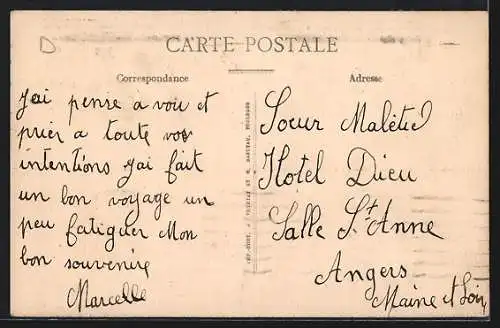 D
CARTE POSTALE
Correspondance
Adresse
J'ai pense à vou et
prier a toute vos
intentions j'ai fait
un bon voyage un
peu fatiguer Mon
bon souvenire
Marcelle
Soeur Malétie
Hotel Dieu
Salle St Anne
Angers
Maine et Loir